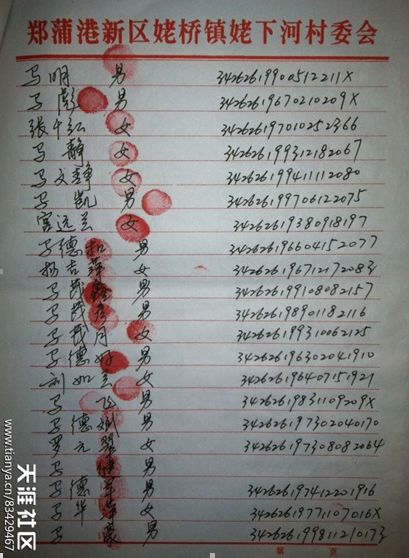 郑蒲港新区姥桥镇姥下河村委会
马明 男 34262619900512211X
马 男 34262619670210209X
张 红 女 342626197010252366
马静 女 342626199312182067
马文静 女 342626199411112080
马凯 男 342626199706122075
远兰 女 34262619380918197
马德和 男 342626196604152077
杨吉萍 女 342626196712172083
马茂 男 342626199108082157
马茂 男 342626198901182116
马茂月 男 342626199310062125
马德好 男 342626196302041910
刘如兰 女 342626196407151921
马飞 男 34262619831109209X
马德 男 342626197302040170
罗元翠 女 342626197308082064
马 男
马德 男 342626197412201916
马华 女 34262619771107016X
马 豪 男 342626199811210173
第 页
天涯社区
www.tianya.cn/83429467